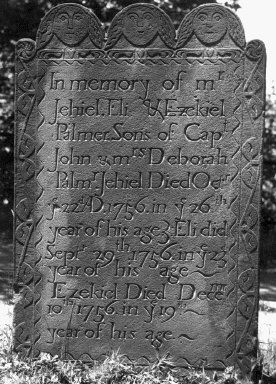 In memory of mr
Jehiel Eli & Ezekiel
Palmer Sons of Capt
John & mrs Deborah
Palmr Jehiel Died Octr
ye 22d D. 1756. in ye 26th
year of his age Eli did
Septr 29th 1756. in ye 23
year of his age ~
Ezekiel Died Decemr
10th 1756. in ye 19
year of his age. ~